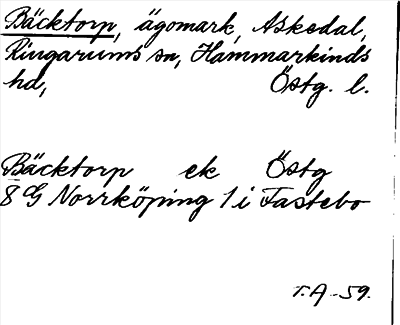 Bäcktorp, ägomark, Askedal,
Ringarums sn, Hammarkinds
hd, Östg. l.
Bäcktorp ek Östg
8 G Norrköping 1 i Fastebo
T.A -59.